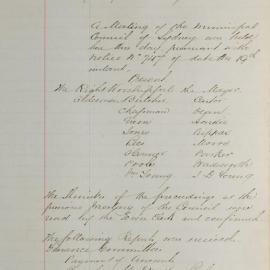 A Meeting of the Municipal
Council of Sydney was held
here this day, pursuant to the
Notice No 745 of date the 19th
instant.
Present
The Right Worshipful the Mayor
Aldermen Butcher Carter
Chapman Dean
Green Landers
Jones Pepper
Lees Moore
Parker
Poole Wadsworth
Wm Young J D Young
The Minutes of the proceedings at the
previous meeting of the Council were
read by the Town Clerk and confirmed.
The following Reports were received
Finance Committee
Payment of Accounts